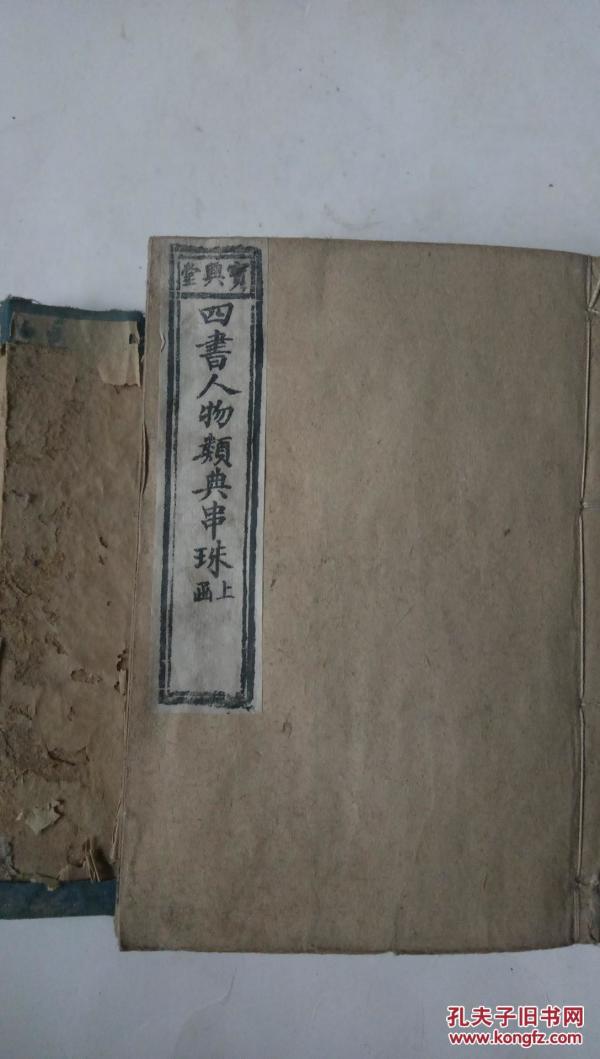 寶興堂
四書人物類典串珠
上函
孔夫子旧书网
www.kongfz.com